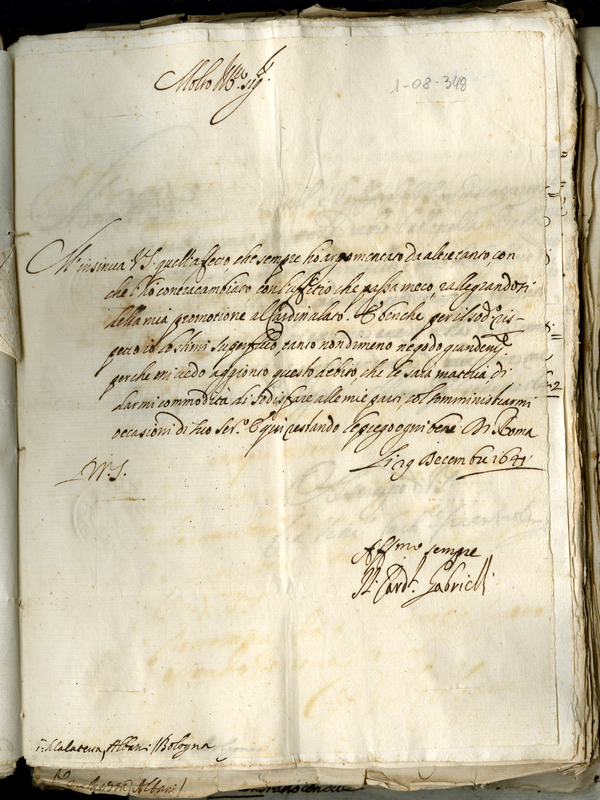 Molto Ill.re sig.r
1-08-348
M'insinua V.S. quell'affetto che sempre ho argomentato da altretanto con
che l'ho contracambiato con l'uffitio che passa meco, rallegrandosi
della mia promotione al Cardinalato. E benche per il sod.o ris-
petto io lo stimi superfluo, tanto nondimeno ne godo grandem.te
perche mi vedo aggionto questo debito, che le sarà materia, di
darmi commodità di sodisfare alle mie parti, col somministrarmi
occasioni di suo ser.o E qui restando le prego ogni bene Di Roma
Li 19 Decembre 1641
V.S.
Aff.mo sempre
Il Card.l Gabrielli
Albani Bologna
Albani